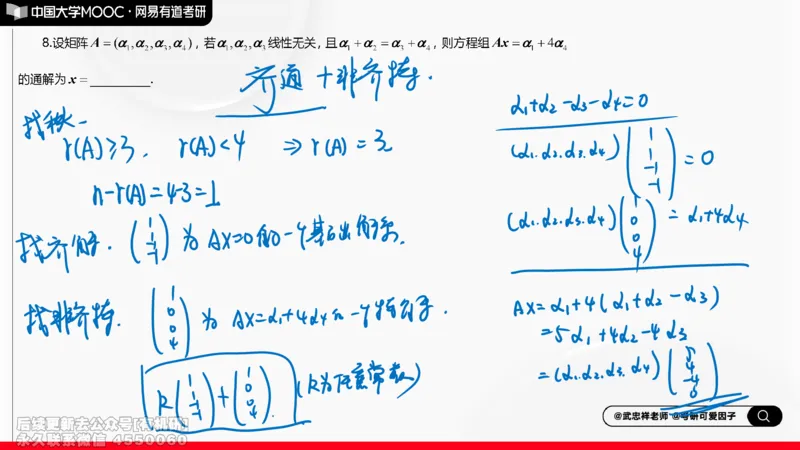 中国大学MOOC·网易有道考研
8.设矩阵 A = (α₁, α₂, α₃, α₄), 若α₁, α₂, α₃线性无关, 且α₁ + α₂ = α₃ + α₄, 则方程组 Ax = α₁ + 4α₄
的通解为 x = ________.
齐通 + 非齐特.
找秩
r(A)≥3, r(A)<4 ⇒ r(A) = 3
n-r(A)=4-3=1
找齐解. (1 1 -1 -1) 为 AX=0 的一个基础解系.
找非齐特. (1 0 0 4) 为 AX=α₁+4α₄ 的一个特解.
k(1 1 -1 -1) + (1 0 0 4). (k为任意常数)
α₁+α₂-α₃-α₄=0
(α₁.α₂.α₃.α₄)(1 1 -1 -1) = 0
(α₁.α₂.α₃.α₄)(1 0 0 4) = α₁+4α₄
AX=α₁+4(α₁+α₂-α₃)
=5α₁+4α₂-4α₃
=(α₁.α₂.α₃.α₄)(5 4 -4 0)
@武忠祥老师 @考研可爱因子
后续更新去公众号[有机研]
永久联系微信 4550060